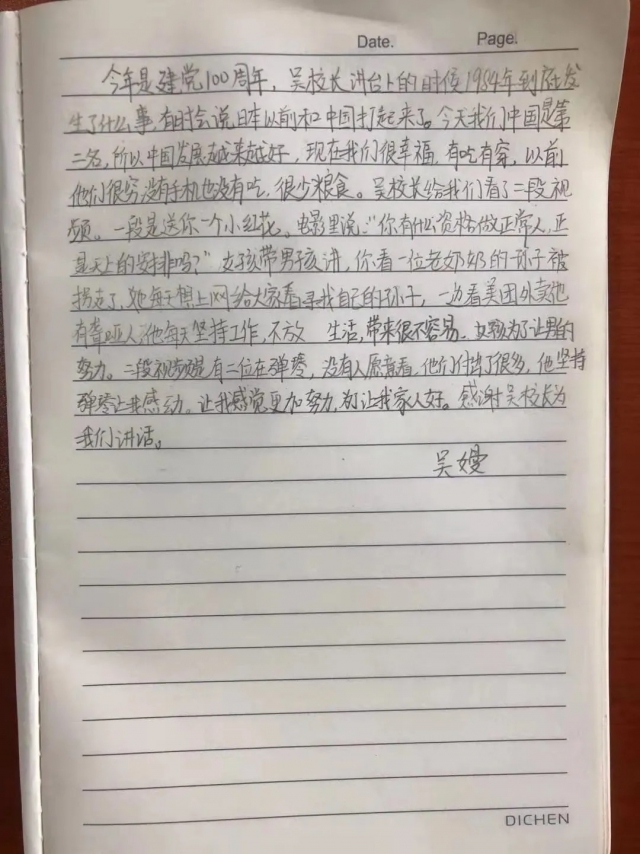 Date. Page.
今年是建党100周年，吴校长讲台上的时候1984年到底发
生了什么事，有时会说日本以前和中国打起来了。今天我们中国是第
二名，所以中国发展越来越好，现在我们很幸福，有吃有穿，以前
他们很穷没有手机也没有吃，很少粮食。吴校长给我们看了二段视
频。一段是送你一个小红花。电影里说："你有什么资格做正常人，正
是天上的安排吗？"女孩带男孩讲，你看一位老奶奶的孙子被
拐走了，她每天想上网给大家看寻找自己的孙子，一边看美团外卖他
有聋哑人，他每天坚持工作，不放 生活，带来很不容易。女孩为了让男的
努力。二段视频是有二位在弹琴，没有人愿意看，他们付出了很多，他坚持
弹琴让我感动。让我感觉更加努力，为了让我家人好。感谢吴校长为
我们讲话。
吴嫚
DICHEN